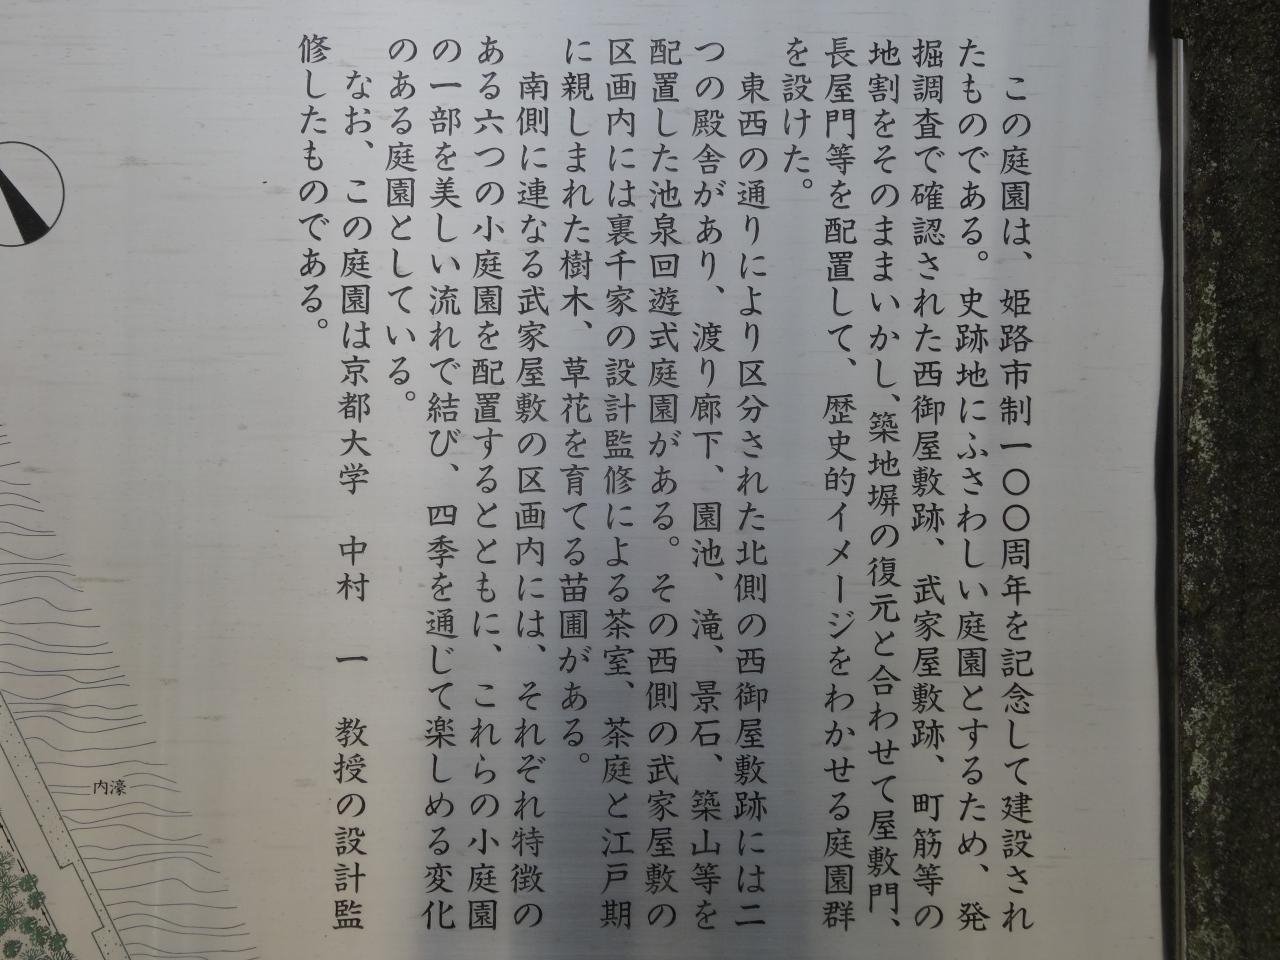 この庭園は、姫路市制一〇〇周年を記念して建設され
たものである。史跡地にふさわしい庭園とするため、発
掘調査で確認された西御屋敷跡、武家屋敷跡、町筋等の
地割をそのままいかし、築地塀の復元と合わせて屋敷門、
長屋門等を配置して、歴史的イメージをわかせる庭園群
を設けた。
東西の通りにより区分された北側の西御屋敷跡には二
つの殿舎があり、渡り廊下、園池、滝、景石、築山等を
配置した池泉回遊式庭園がある。その西側の武家屋敷の
区画内には裏千家の設計監修による茶室、茶庭と江戸期
に親しまれた樹木、草花を育てる苗圃がある。
南側に連なる武家屋敷の区画内には、それぞれ特徴の
ある六つの小庭園を配置するとともに、これらの小庭園
の一部を美しい流れで結び、四季を通じて楽しめる変化
のある庭園としている。
なお、この庭園は京都大学　中村　一　教授の設計監
修したものである。
内濠